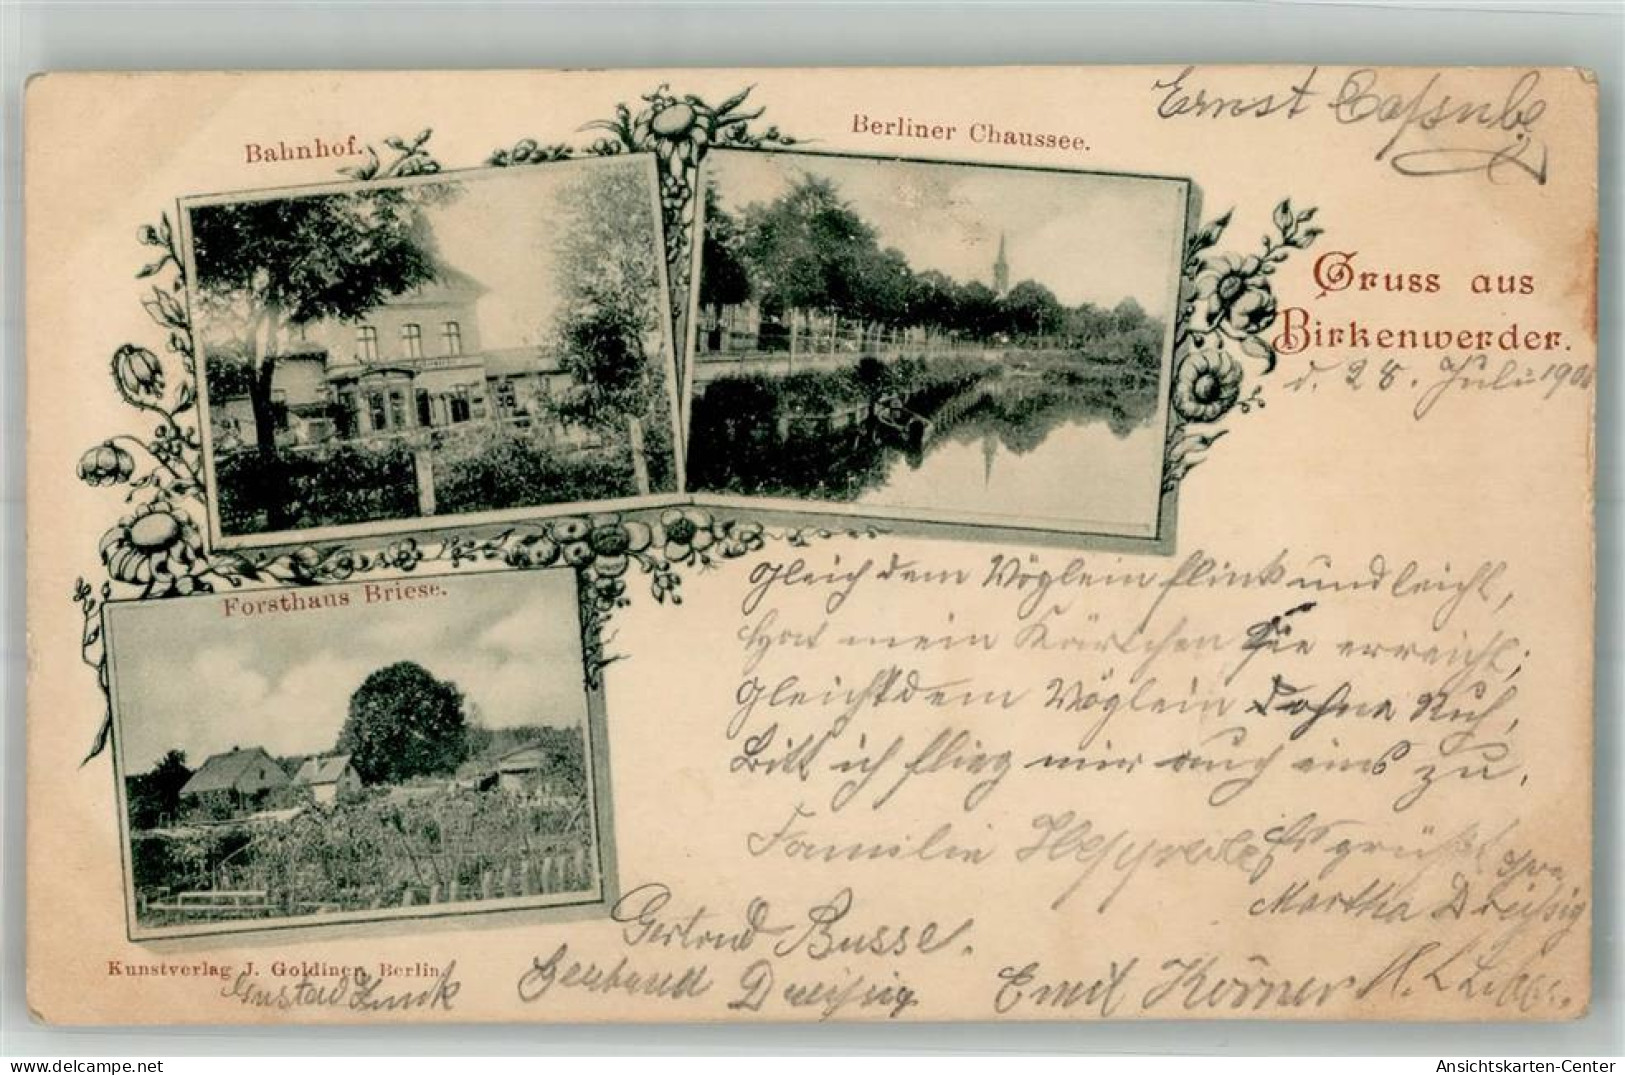 Ernst
Bahnhof.
Berliner Chaussee.
Gruss aus
Birkenwerder.
d. 28. Juli 190
Forsthaus Briese.
Gleich dem Vöglein flink und leicht,
Hat mein Kärtchen Sie erreicht;
Gleich dem Vöglein ohne Ruh,
Bitt ich flieg mir auch eins zu.
Familie Es grüßt
Martha Dreißig
Gertrud Busse.
Kunstverlag J. Goldiner, Berlin.
Gustav
Gertrud Dreißig
Emil Körner
Ansichtskarten-Center